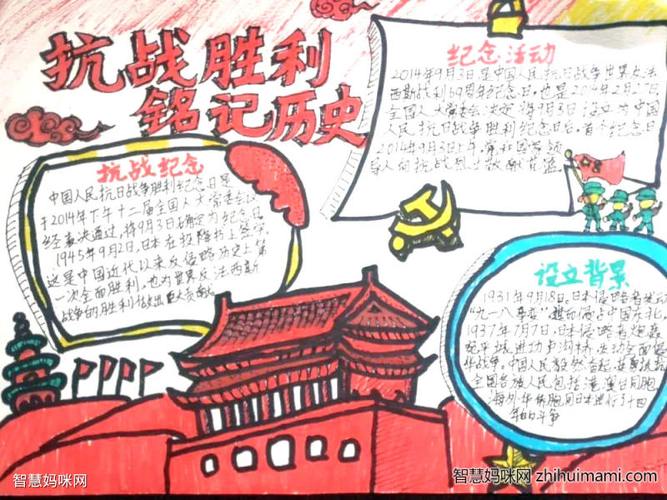 抗战胜利
铭记历史
纪念活动
2014年9月3日是中国人民抗日战争暨世界反法
西斯战利69周年纪念日,也是2014年2月27日
全国人大常委会决定将9月3日设立为中国
人民抗日战争胜利纪念日后,首个纪念日
2014年9月3日上午,党和国家领
导人向抗战烈士敬献花篮
抗战纪念
中国人民抗日战争胜利纪念日是
于2014年下午十二届全国人大常委会
经表决通过,将9月3日确定为纪念日
1945年9月2日,日本在投降书上签字
这是中国近代以来反侵略历史上第
一次全面胜利,也为世界反法西斯
战争的胜利做出巨大贡献
设立背景
1931年9月18日,日本侵略者发动
"九一八事变"
1937年7月7日,日本侵略者炮轰
宛平城进攻卢沟桥,发动全面侵
华战争。中国人民毅然奋起
全国各族人民包括港澳台同胞
海外侨胞同日本进行了十四
年的斗争
智慧妈咪网
智慧妈咪网 zhihuimami.com